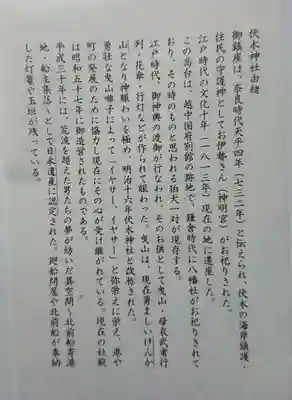 伏木神社由緒
御鎮座は、奈良時代天平四年（七三二年）と伝えられ、伏木の海岸鎮護・
住民の守護神としてお伊勢さん（神明宮）がお祀りされた。
江戸時代の文化十年（一八一三年）現在の地に遷座した。
この高台は、越中国府別館の跡地で、鎌倉時代に八幡社がお祀りされて
おり、その時のものと思われる狛犬一対が現存する。
江戸時代、御神輿の渡御が行なわれ、そのお供として曳山・母衣武者行
列・花傘・行灯などが作られて賑わった。曳山は、現在勇ましいけんか
山となり神賑わいを極め、明治十六年伏木神社と改称された。
勇壮な曳山囃子によって「イヤサー、イヤサー」と弥栄に栄え、港や
町の発展のために協力し現在にその心が受け継がれている。現在の社殿
は昭和五十七年に御造営されたものである。
平成三十年には、荒波を越えた男たちの夢が紡いだ異空間～北前船寄港
地・船主集落～として日本遺産に認定された。廻船問屋や北前船が奉納
した灯篭や玉垣が残っている。